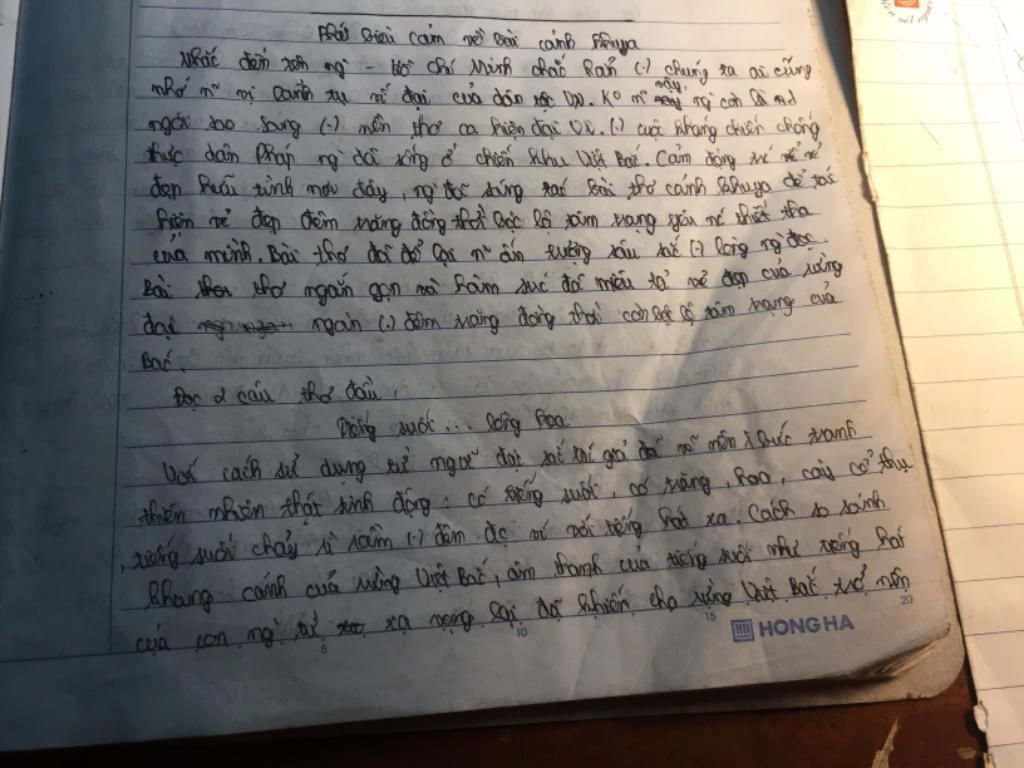 Phát biểu cảm về bài cảnh khuya
Nhắc đến tên ng - Hồ Chí Minh chắc hẳn (.) chúng ta ai cũng
nhớ vị tụ vĩ đại của dân tộc VN. Ko này, ng còn là
ngôi sao sáng (.) nền thơ ca hiện đại VN. (.) cuộc kháng chiến chống
thực dân Pháp ng đã sống ở chiến khu Việt Bắc. Cảm động vẻ
đẹp hữu tình nơi đây, ng đã sáng tác bài thơ cảnh khuya để tái
hiện vẻ đẹp đêm trăng đồng thời bộc lộ tâm trạng yêu nc thiết tha
của mình. Bài thơ đã để lại ấn tượng sâu sắc (.) lòng ng đọc.
Bài thơ ngắn gọn mà hàm súc đã miêu tả vẻ đẹp của rừng
đại ngàn (.) đêm trăng đồng thời còn bộc lộ tâm trạng của
Bác.
Đọc 2 câu thơ đầu:
Tiếng suối... lồng hoa
Với cách sử dụng từ ngữ tác giả đã vẽ nên bức tranh
thiên nhiên thật sinh động: có tiếng suối, có trăng, hoa, cây cổ thụ
, tiếng suối chảy rì rầm (.) đêm đc ví với tiếng hát xa. Cách so sánh
khung cảnh của rừng Việt Bắc, âm thanh của tiếng suối như tiếng hát
của con ng từ xa vọng lại đã khiến cho rừng Việt Bắc trở nên
5 10 15 20
HONG HA